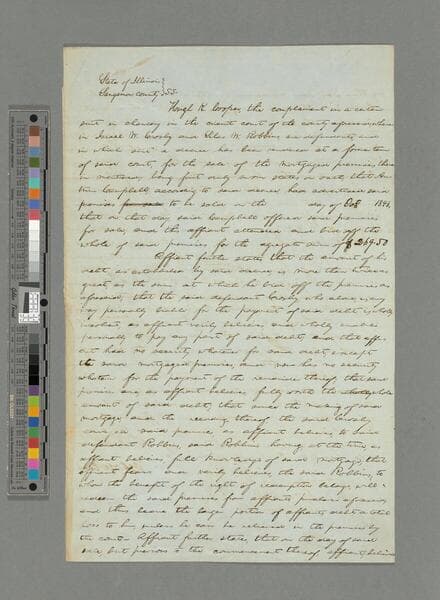 State of Illinois }
Sangamon County } SS.
Hough K. Cooper, the complainant in a certain
suit in chancery in the circuit court of the county aforesaid wherein
Israel W. Crosby and W. Robbins are defendants, and
in which suit a decree has been rendered at a term
of said court, for the sale of the mortgaged premises, there
in mentioned, being
Campbell according to said decree had advertised said
premises to be sold on the day of Oct 184
that on that day said Campbell offered said premises
for sale, and this affiant attended and bid off the
whole of said premises for the aggregate sum of $269.50
Affiant further states that the amount of his
debt, as ascertained by said decree, is more than twice as
great as the sum at which he bid off the premises as
aforesaid; that the said defendant Crosby who alone is in any
way personally liable for the payment of said debt is wholly
insolvent, as affiant verily believes, and wholly unable
personally to pay any part of said debt, and that affi-
ant has no security whatever for said debt, except
the said mortgaged premises, and now has no security
whatever for the payment of the remainder thereof, that said
premises are as affiant believes fully worth the whole
amount of said debt; that since the making of said
mortgage and the recording thereof the said Crosby
said premises as affiant believes to his
defendant Robbins, said Robbins having at the time as
affiant believes, full knowledge of said mortgage, that
affiant fears and verily believes the said Robbins, to
whom the benefit of the right of redemption belongs will
redeem the said premises from affiants purchase aforesaid,
and thus leave the large portion of affiants debt a total
loss to him, unless he can be relieved in the premises by
the court. Affiant further states, that on the day of said
sale, but previous to the commencement thereof affiant, believing